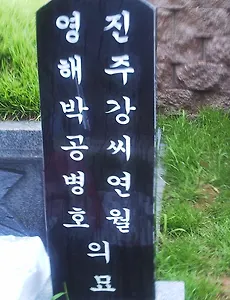 진주강씨연월
영해박공병호
의묘